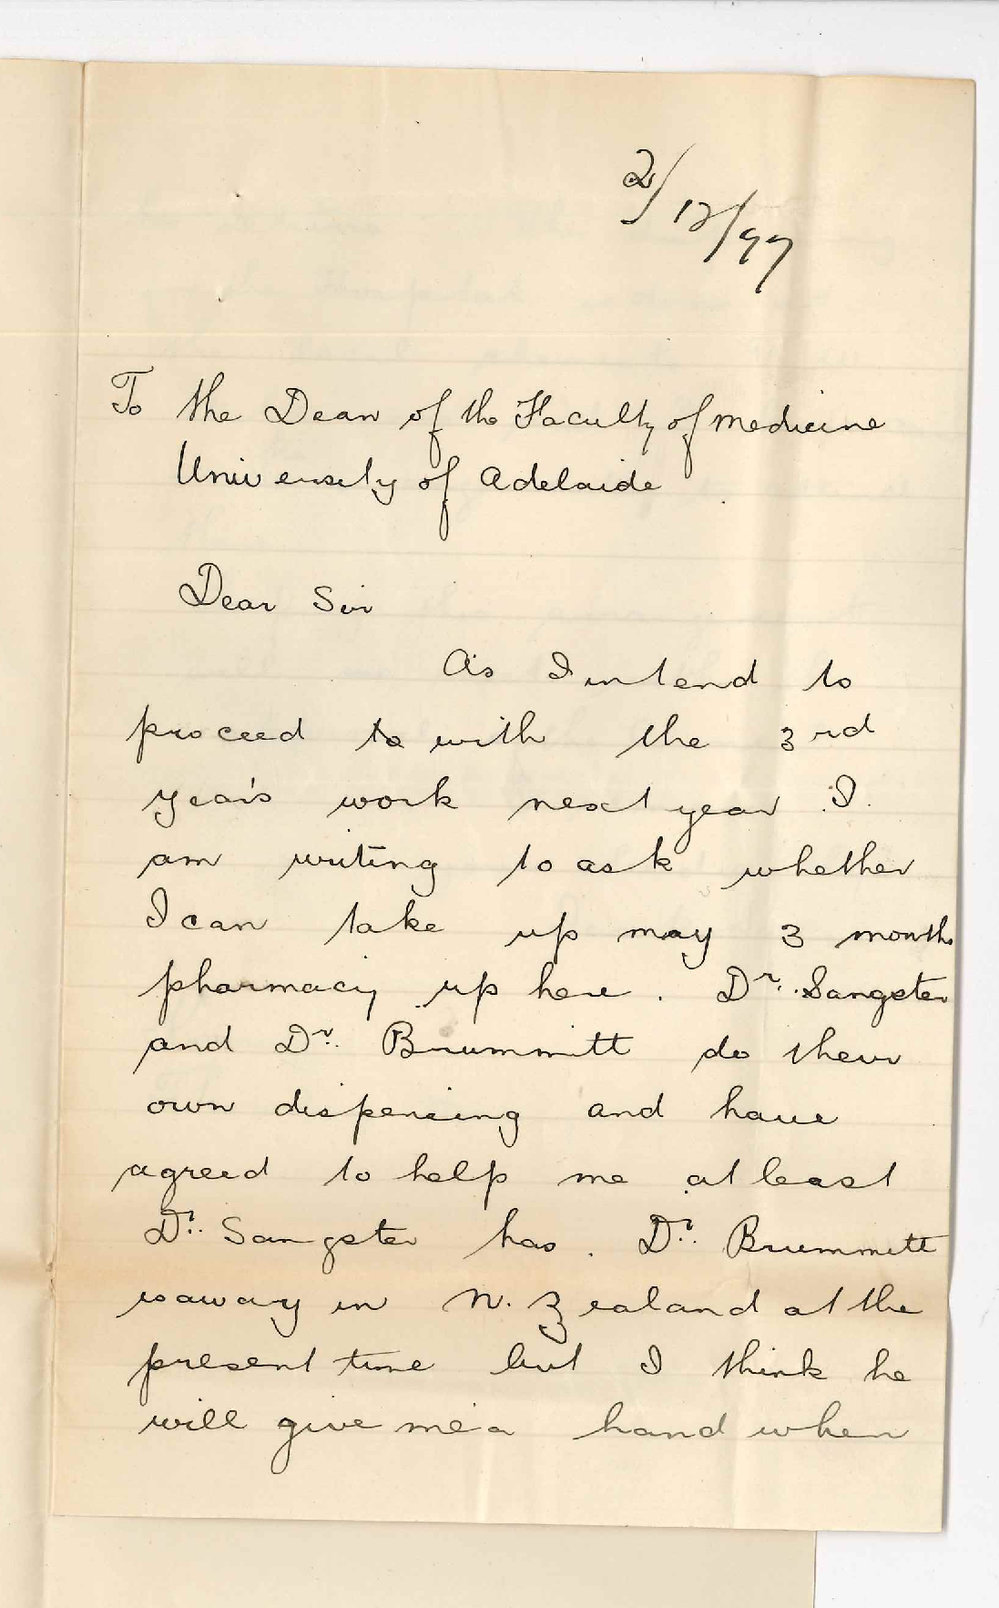 2/12/97
To the Dean of the Faculty of Medicine
University of Adelaide
Dear Sir
As I intend to
proceed to with the 3rd
year's work next year I
am writing to ask whether
I can take up may 3 months
pharmacy up here. Dr. Sangster
and Dr. Brummitt do their
own dispensing and have
agreed to help me at least
Dr. Sangster has. Dr. Brummitt
is away in N. Zealand at the
present time but I think he
will give me a hand when